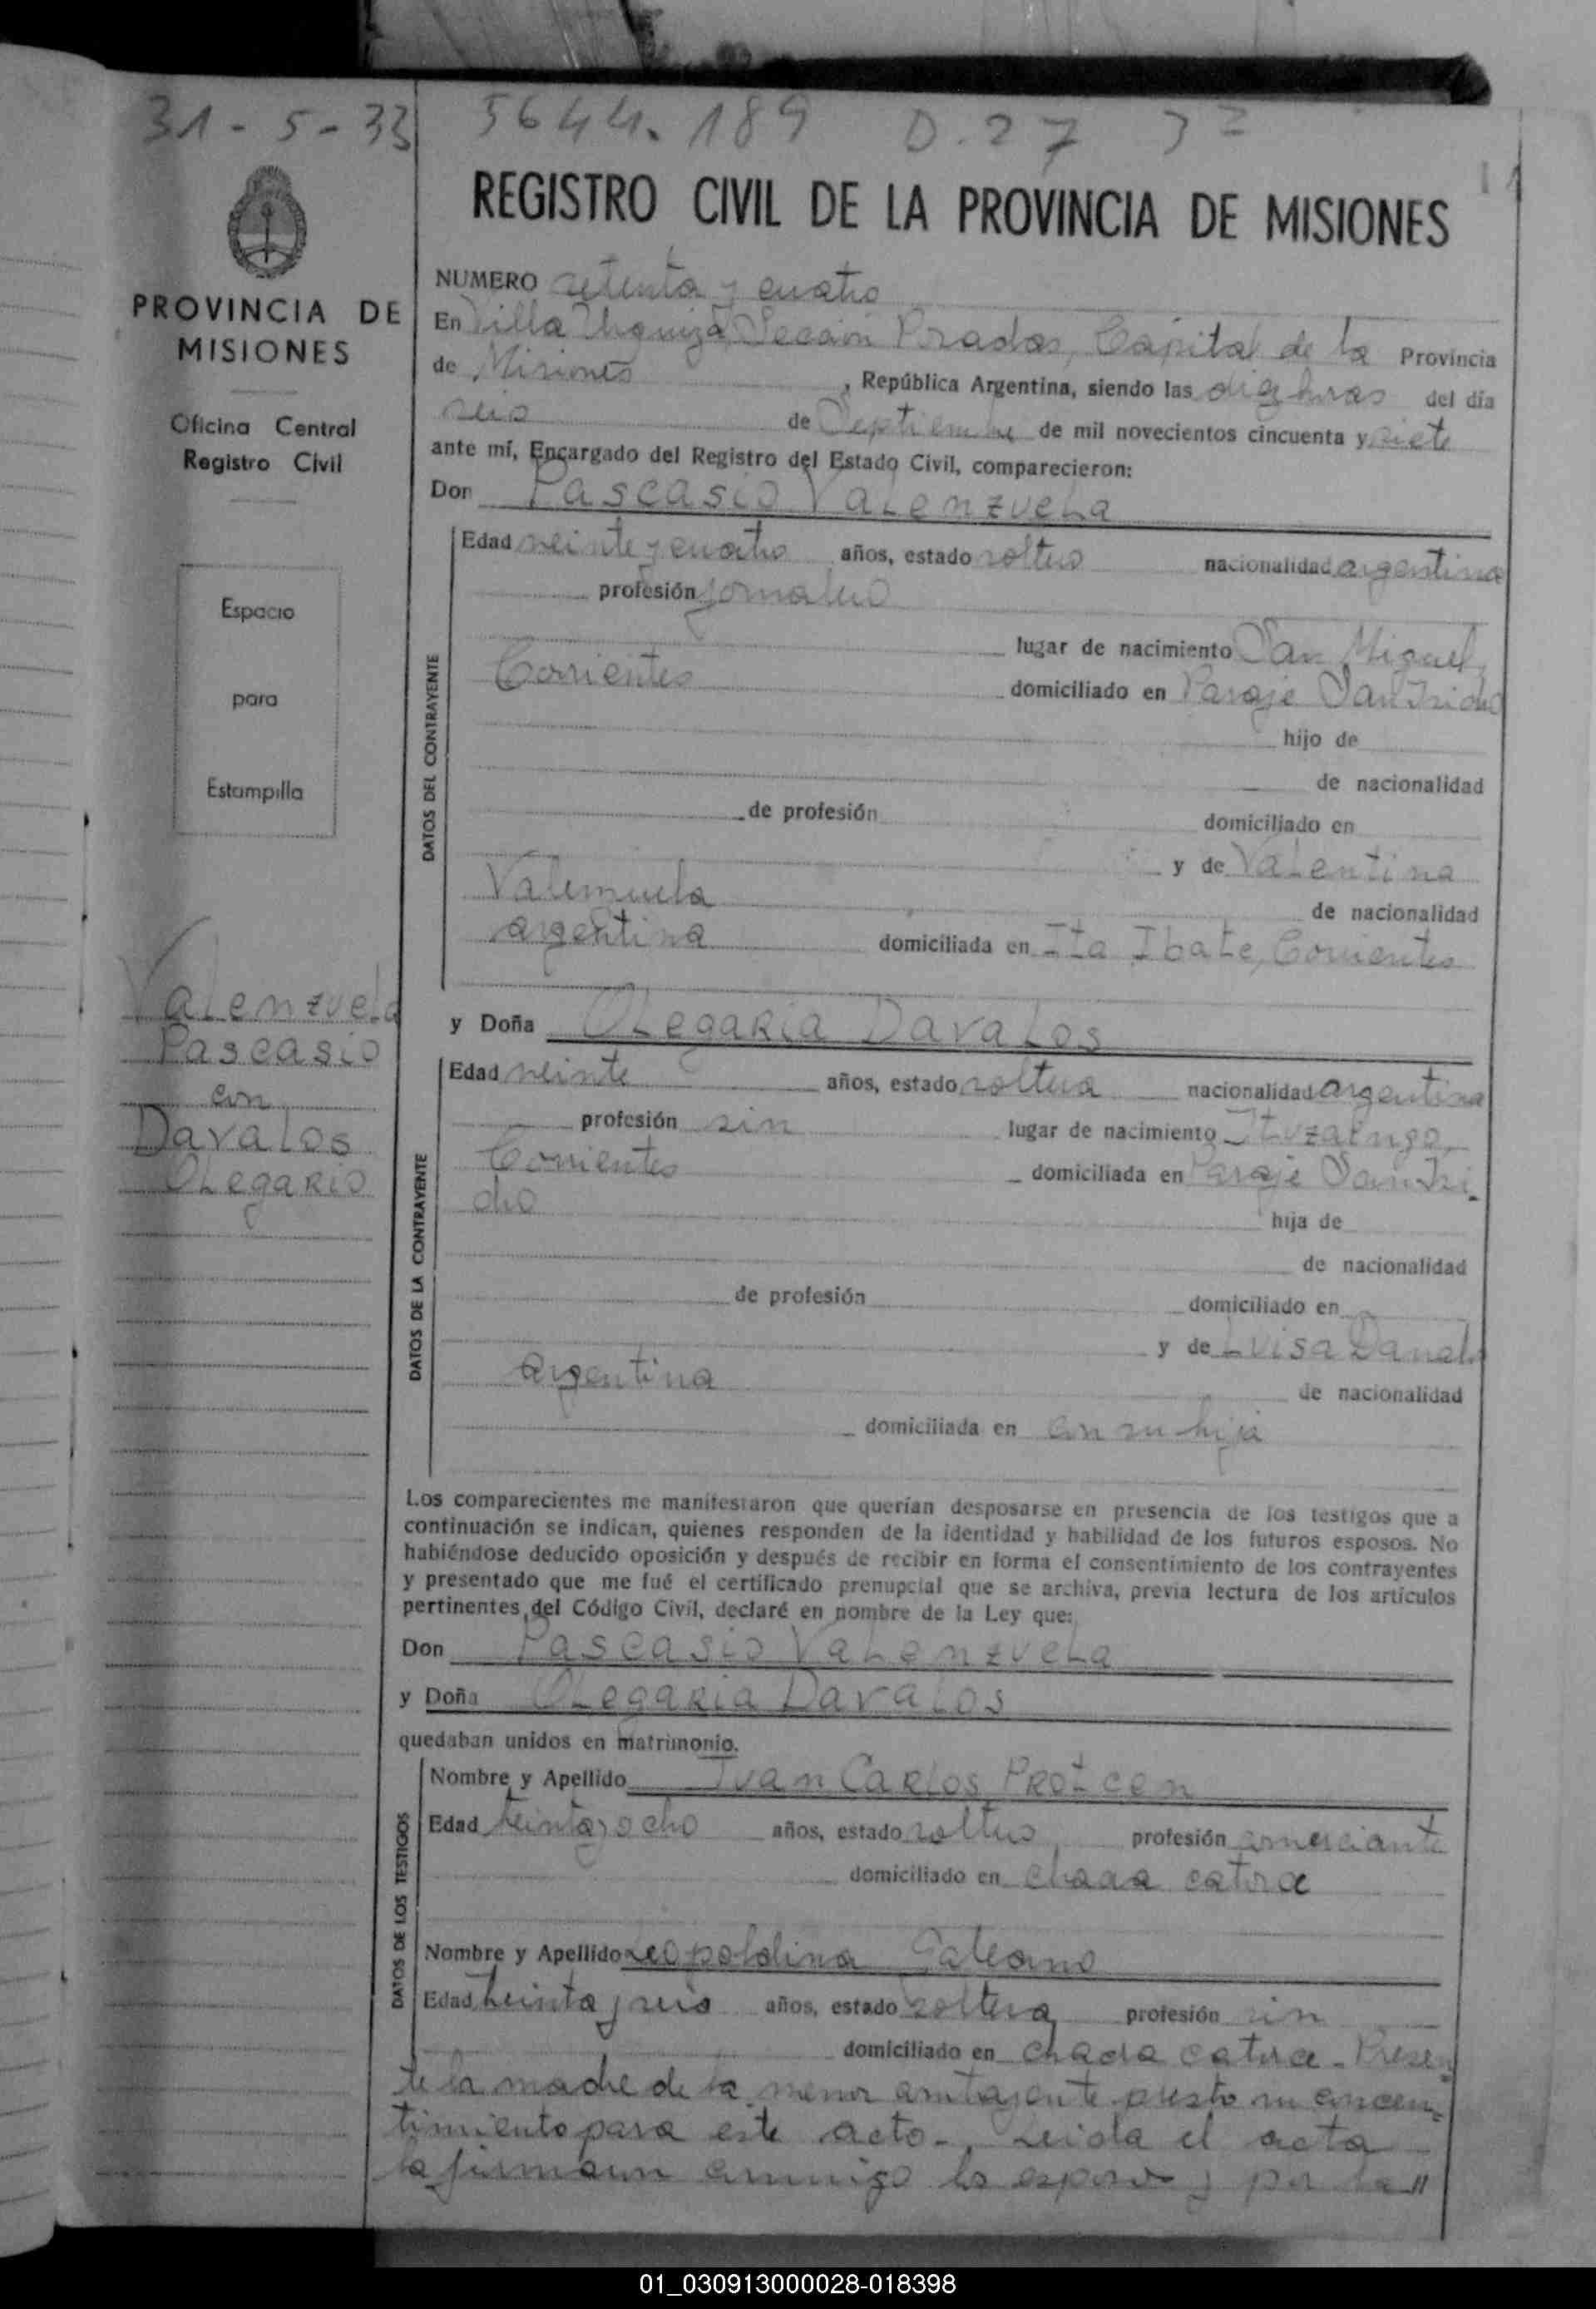 31-5-33 5644.189 D.27
REGISTRO CIVIL DE LA PROVINCIA DE MISIONES
PROVINCIA DE
MISIONES
Oficina Central
Registro Civil
Espacio
para
Estampilla
Valenzuela
Pascasio
con
Davalos
Olegario
NUMERO setenta y cuatro
En Villa Urquiza Sección Prados, Capital de la Provincia
de Misiones, República Argentina, siendo las diez horas del día
seis de Septiembre de mil novecientos cincuenta y siete
ante mí, Encargado del Registro del Estado Civil, comparecieron:
Don Pascasio Valenzuela
DATOS DEL CONTRAYENTE
Edad veinte y cuatro años, estado soltero nacionalidad argentina
profesión jornalero
lugar de nacimiento San Miguel,
Corrientes domiciliado en Paraje San Isidro
hijo de
de nacionalidad
de profesión domiciliado en
y de Valentina
Valenzuela de nacionalidad
argentina domiciliada en Ita Ibate, Corrientes
y Doña Olegaria Davalos
DATOS DE LA CONTRAYENTE
Edad veinte años, estado soltera nacionalidad argentina
profesión sin lugar de nacimiento Ituzaingo,
Corrientes domiciliada en Paraje San Isi-
dro hija de
de nacionalidad
de profesión domiciliado en
y de Luisa Davalos
argentina de nacionalidad
domiciliada en con su hija
Los comparecientes me manifestaron que querían desposarse en presencia de los testigos que a
continuación se indican, quienes responden de la identidad y habilidad de los futuros esposos. No
habiéndose deducido oposición y después de recibir en forma el consentimiento de los contrayentes
y presentado que me fué el certificado prenupcial que se archiva, previa lectura de los artículos
pertinentes del Código Civil, declaré en nombre de la Ley que:
Don Pascasio Valenzuela
y Doña Olegaria Davalos
quedaban unidos en matrimonio.
DATOS DE LOS TESTIGOS
Nombre y Apellido Juan Carlos
Edad treinta y ocho años, estado soltero profesión comerciante
domiciliado en chacra catorce
Nombre y Apellido Leopoldina Galeano
Edad treinta y seis años, estado soltera profesión sin
domiciliado en chacra catorce - Presen=
te la madre de la menor contrayente presto su concen=
timiento para este acto-. Leida el acta
la firmaron conmigo los esposos y por la "
01_030913000028-018398